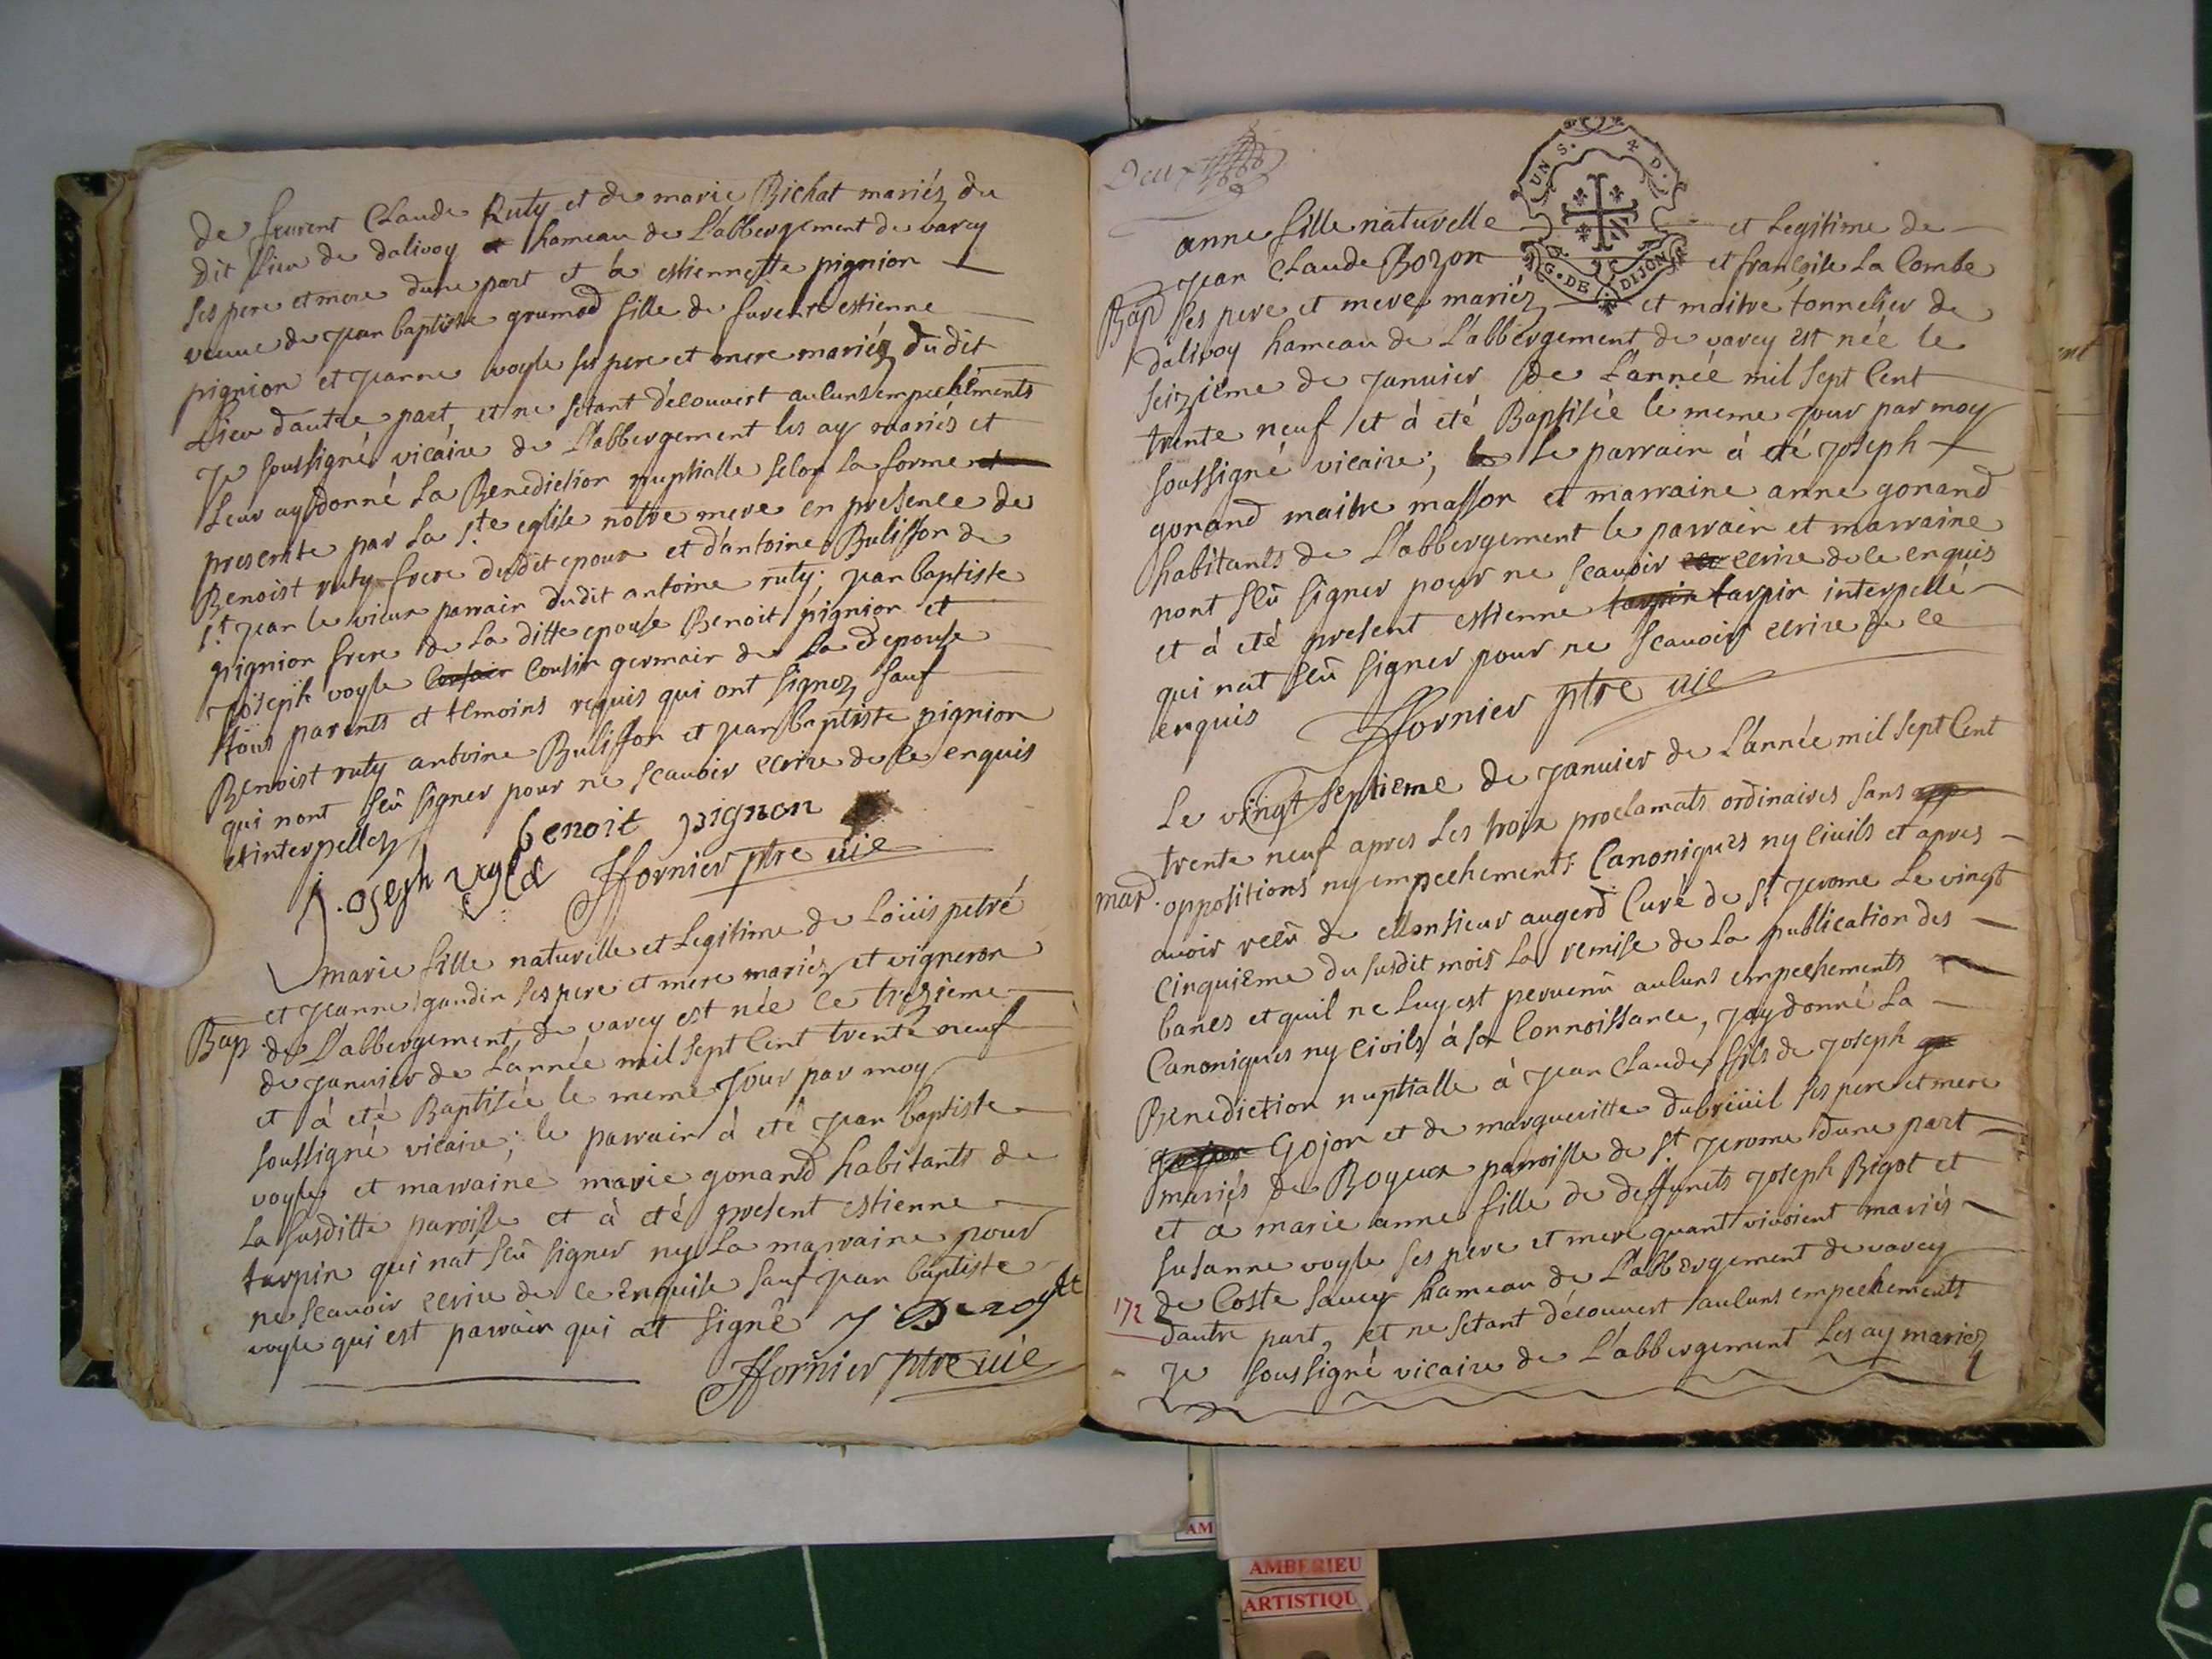 de furent Claude Ruty et de marie Bichat mariéz du
dit lieu de dalivoy hameau de L'abbergement de varey
ses pere et mere dune part et a estiennette pignion
veuve de jean baptiste grumod fille de furent estienne
pignion et jeanne vogle ses pere et mere mariéz du dit
Lieu dautre part, et ne setant découvert auluns empechements
je soussigné vicaire de L'abbergement les ay mariés et
Leur ay donné La Benediction nuptialle selon la forme
presente par La s.te eglise notre mere en presence de
Benoist ruty frere dudit epoux et d'antoine Bulisson de
s.t jean le vieux parrain dudit antoine ruty, jean baptiste
pignion frere de La ditte epouse Benoit pignion et
joseph vogle Cousin germain de La d epouse
tous parents et temoins requis qui ont signéz sauf
Benoist ruty antoine Bulisson et jean baptiste pignion
qui nont sçû signer pour ne scauoir ecrire de ce enquis
et interpellez
benoit pignon
j. oseph vogle
ffornier ptre vic
marie fille naturelle et Legitime de Loüis petré
et jeanne gaudin ses pere et mere mariéz et vigneron
Bap. de L'abbergement de varey est née le trezieme
de januier de L'année mil sept Cent trente neuf
et à eté Baptisée le meme jour par moy
soussigné vicaire; le parrain à eté jean baptiste
vogle et marraine marie gonand habitants de
La susditte paroisse et à eté present estienne
tarpin qui nat sçû signer ny La marraine pour
ne scauoir ecrire de ce enquise sauf jean baptiste
vogle qui est parrain qui at signé J B
ffornier ptre vic
anne fille naturelle et Legitime de
jean Claude Bozon et françoise La Combe
Bap ses pere et mere mariéz et maitre tonnelier de
dalivoy hameau de L'abbergement de varey est née le
seizième de januier de L'année mil sept Cent
trente neuf et à eté Baptisée le meme jour par moy
soussigné vicaire; Le parrain à eté joseph
gonand maitre masson et marraine anne gonand
habitants de L'abbergement le parrain et marraine
nont sçû signer pour ne scauoir ecrire de ce enquis
et à eté present estienne tarpin tarpin interpellé
qui nat sçû signer pour ne scauoir ecrire de ce
enquis ffornier ptre vic
Le vingt septieme de januier de L'année mil sept Cent
trente neuf apres Les trois proclamats ordinaires sans
mar. oppositions ny empechements Canoniques ny Civils et apres
avoir reçû de Monsieur augerd Curé de S.t jerome Le vingt
cinquième du susdit mois La remise de La publication des
bancs et quil ne Luy est pervenû auluns empechements
Canoniques ny Civils à sa Connoissance, j'ay donné La
Benediction nuptialle à jean Claude fils de joseph
Gojon et de margueritte dubreüil ses pere et mere
mariés de Boyeux parroisse de S.t jerome dune part
et à marie anne fille de deffunts joseph Bigot et
susanne vogle ses pere et mere quant vivoient mariés
de Coste savey hameau de L'abbergement de varey
172 dautre part, et ne setant découvert auluns empechements
je soussigné vicaire de L'abbergement Les ay mariéz
UN S. 4 D.
G. DE DIJON
AM
AMBERIEU
ARTISTIQU